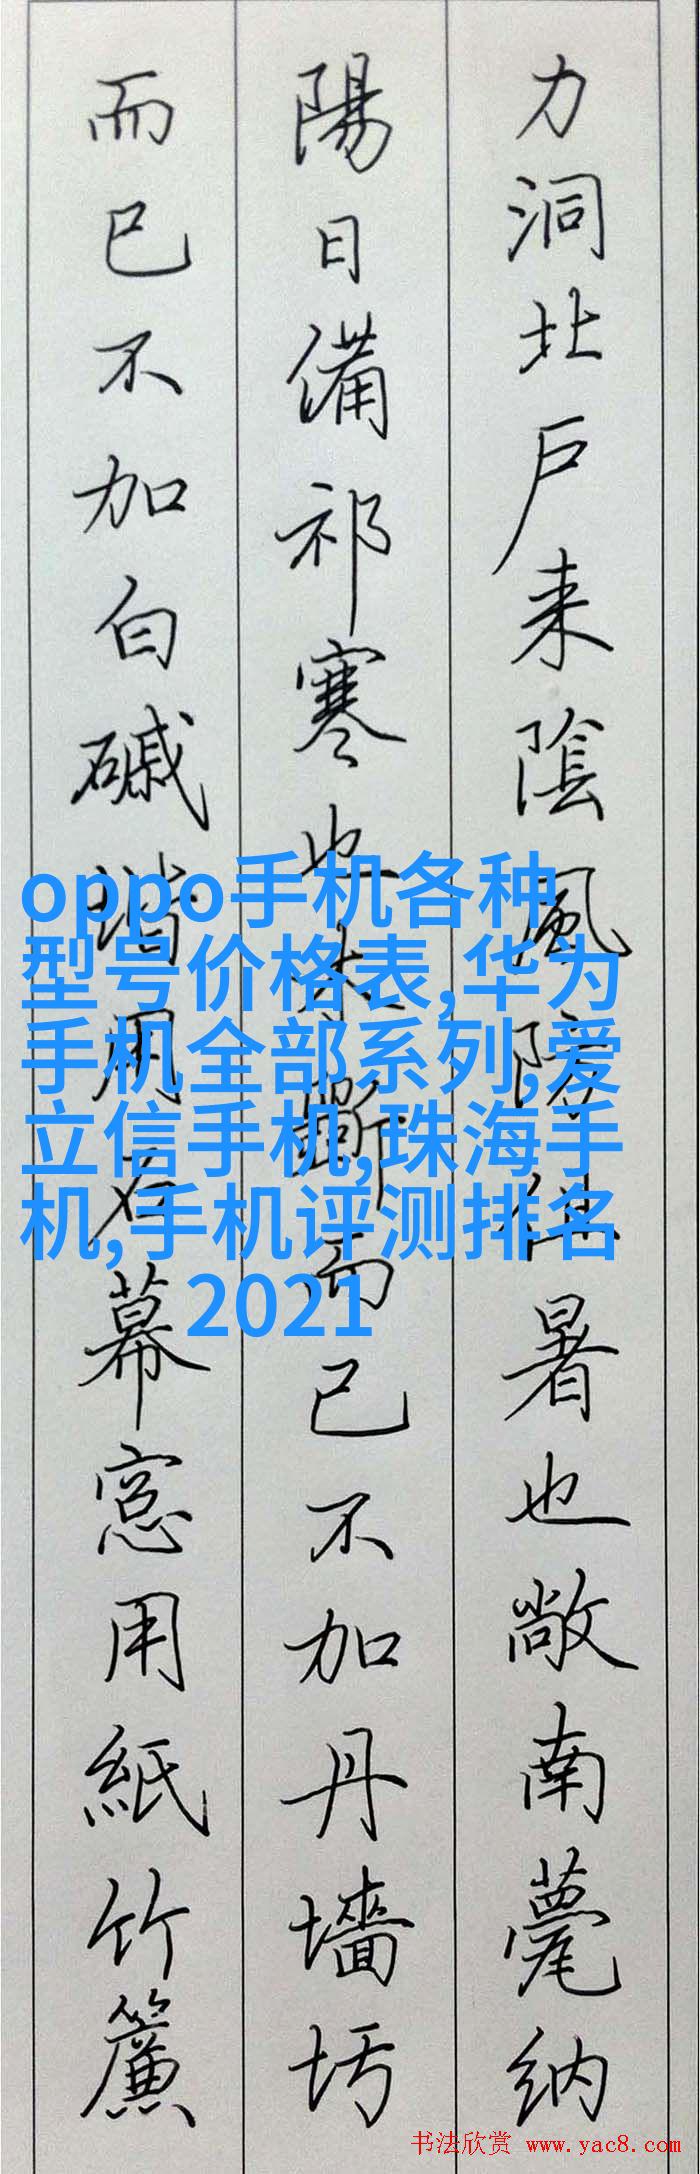 力洞北戶来陰風防徂暑也敞南甍纳
陽日備祁寒也木斷而已不加丹墻圬
而已不加白磩堦用石幕窓用紙竹簾
oppo手机各种
型号价格表,华为
手机全部系列,爱
立信手机,珠海手
机,手机评测排名
2021
书法欣赏 www.yac8.com